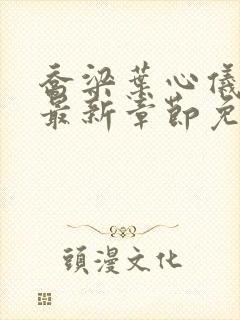 乔梁葉心儀
最新章節免
頭漫文化